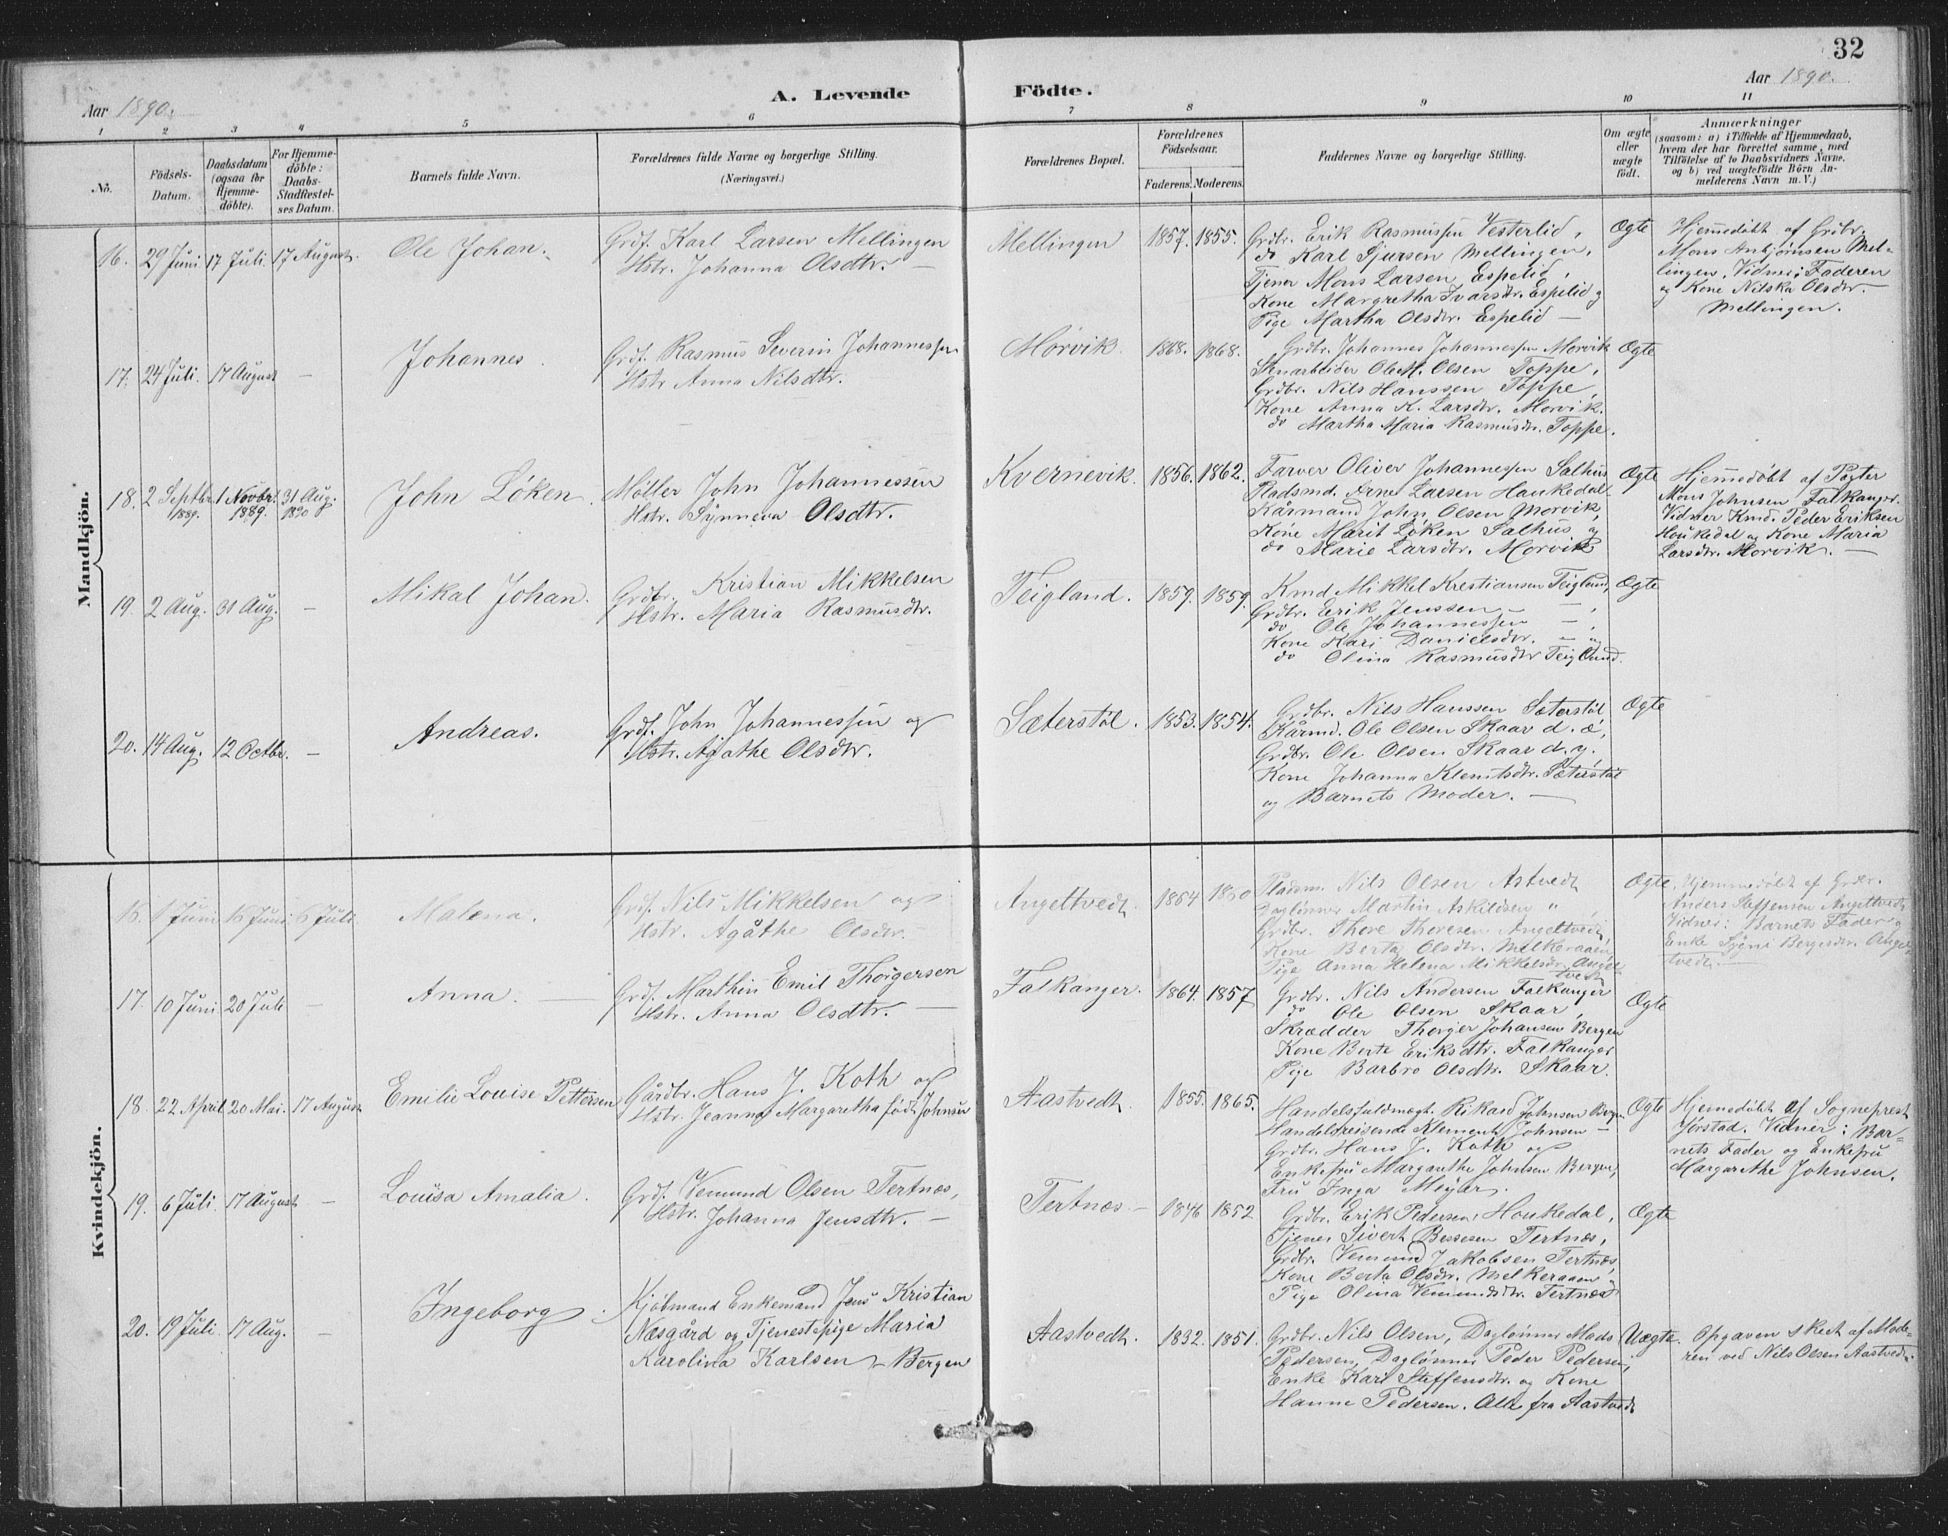 32
Aar 1890.
A. Levende Födte.
Aar 1890.
1 2 3 4 5 6 7 8 9 10 11
No.
Födsels-
Datum.
Daabsdatum
(ogsaa for
Hjemme-
döbte).
For Hjemme-
döbte:
Daabs-
Stadfæstel-
ses Datum.
Barnets fulde Navn.
Forældrenes fulde Navne og borgerlige Stilling.
(Næringsvei.)
Forældrenes Bopæl.
Forældrenes
Födselsaar.
Faderens. Moderens.
Faddernes Navne og borgerlige Stilling.
Om ægte
eller
uægte
födt.
Anmærkninger
(saasom: a) i Tilfælde af Hjemmedaab,
hvem der har forrettet samme, med
Tilföielse af to Daabsvidners Navne,
og b) ved uægtefödte Börn An-
melderens Navn m. V.)
Mandkjön.
16. 29 Juni 17 Juli 17 August.
Ole Johan.
Grdf. Karl Larsen Mellingen
Hstr. Johanna Olsdtr. —
Mellingen 1857. 1855.
Grdbr. Erik Rasmussen Vesterlid,
do Karl Sjursen Mellingen,
Tjener Mons Larsen Espelid,
Kone Margretha Ivarsdtr. Espelid og
Pige Martha Olsdtr. Espelid —
Ægte
Hjemmedöbt af Grdbr.
Mons Anbjørnsen Mel-
lingen. Vidner: Faderen
og Kone Nilska Olsdtr.
Mellingen.
17. 24 Juli. 17 August —
Johannes
Grdf. Rasmus Severin Johannessen
Hstr Anna Nilsdtr.
Morvik. 1868. 1868.
Grdbr. Johannes Johannessen Morvik
Stenarbeider Ole M. Olsen Toppe,
Grdbr. Nils Hanssen Toppe,
Kone Anna K. Larsdtr. Morvik.
do Martha Maria Rasmusdtr. Toppe.
Ægte
18. 2 Septbr. 1889. 1 Novbr. 1889. 31 Aug. 1890
John Løken.
Møller John Johannessen
Hstr. Synneva Olsdtr.
Kvernevik. 1856. 1862.
Farver Oliver Johannessen Salhus
Pladsmd. Arne Larsen Haukedal
Kårmand John Olsen Morvik,
Kone Marit Løken Salhus og
do Marie Larsdtr. Morvik
Ægte
Hjemmedöbt af Pogter
Mons Johnsen Falkanger.
Vidner Kmd. Peder Eriksen
Houkedal og Kone Maria
Larsdtr. Morvik. —
19. 2 Aug. 31 Aug. —
Mikal Johan.
Grdbr. Kristian Mikkelsen
Hstr. Maria Rasmusdtr.
Teigland. 1859. 1859.
Kmd Mikkel Krestiansen Teigland,
Grdbr. Erik Jenssen — ,
do Ole Johannessen — ,
Kone Kari Danielsdtr. — og
do Olina Rasmusdtr Teigland.
Ægte
20. 14 Aug. 12 Octbr. —
Andreas.
Grdf. John Johannessen og
Hstr. Agathe Olsdtr.
Sæterstøl. 1853. 1854.
Grdbr. Nils Hanssen Sæterstøl
Kårmd. Ole Olsen Skaar d. æ,
Grdbr. Ole Olsen Skaar d. y.
Kone Johanna Klemtsdtr. Sæterstøl
og Barnets Moder. —
Ægte
Kvindekjön.
16. 1 Juni 16 Juni 6 Juli.
Malena.
Grdf. Nils Mikkelsen og
Hstr. Agåthe Olsdtr. —
Angeltvedt. 1864 1860
Pladsm. Nils Olsen Astvedt
Daglønner Martin Askildsen „ ,
Grdbr. Thore Thoresen Angeltvedt,
Kone Berta Olsdtr. Melkeraaen,
Pige Anna Helena Mikkelsdtr. Angel-
tvedt
Ægte.
Hjemmedöbt af Grdbr.
Anders Steffensen Angeltvedt
Vidner: Barnets Fader og
Enke Bergesdtr. Angel-
tvedt.
17. 10 Juni 20 Juli —
Anna.
Grdf. Marthin Emil Thorgersen
Hstr. Anna Olsdtr. —
Falkanger. 1864. 1857
Grdbr. Nils Andersen Falkanger
do Ole Olsen Skaar,
Skrædder Thorger Johansen Bergen
Kone Berte Eriksdtr. Falkanger
Pige Barbro Olsdtr. Skaar.
Ægte
18. 22 April 20 Mai. 17 August
Emilie Louise Pettersen
Gårdbr. Hans J. Koth og
Hstr. Jeanna Margaretha født Johnsen
Aastvedt. 1855. 1865.
Handelsfuldmægt. Rikard Johnsen Bergen
Handelsreisende Klement Johnsen —
Grdbr. Hans J. Koth og
Enkefru Margarethe Johnsen Bergen,
Fru Inga Meyer.
Ægte
Hjemmedöbt af Sogneprest
Jørstad. Vidner: Bar-
nets Fader og Enkefru
Margarethe Johnsen.
19. 6 Juli 17 August —
Louisa Amalia.
Grdf. Vemund Olsen Tertnæs,
Hstr. Johanna Jensdtr. —
Tertnæs — 1846 1852
Grdbr. Erik Pedersen Houkedal,
Tjener Sivert Bessesen Tertnæs,
Grdbr. Vemund Jakobsen Tertnæs,
Kone Berta Olsdtr. Melkeraaen,
Pige Olina Vemundsdtr. Tertnæs
Ægte
20. 19 Juli 17 Aug. —
Ingeborg.
Kjøbmand Enkemand Jens Kristian
Næsgård og Tjenestepige Maria
Karolina Karlsen, Bergen
Aastvedt. 1832. 1851.
Grdbr. Nils Olsen, Daglønner Mads
Pedersen, Daglønner Peder Pedersen,
Enke Kari Steffensdtr. og Kone
Hanne Pedersen. Alle fra Aastvedt
Uægte.
Opgaven skeet af Mode-
ren ved Nils Olsen Aastvedt.